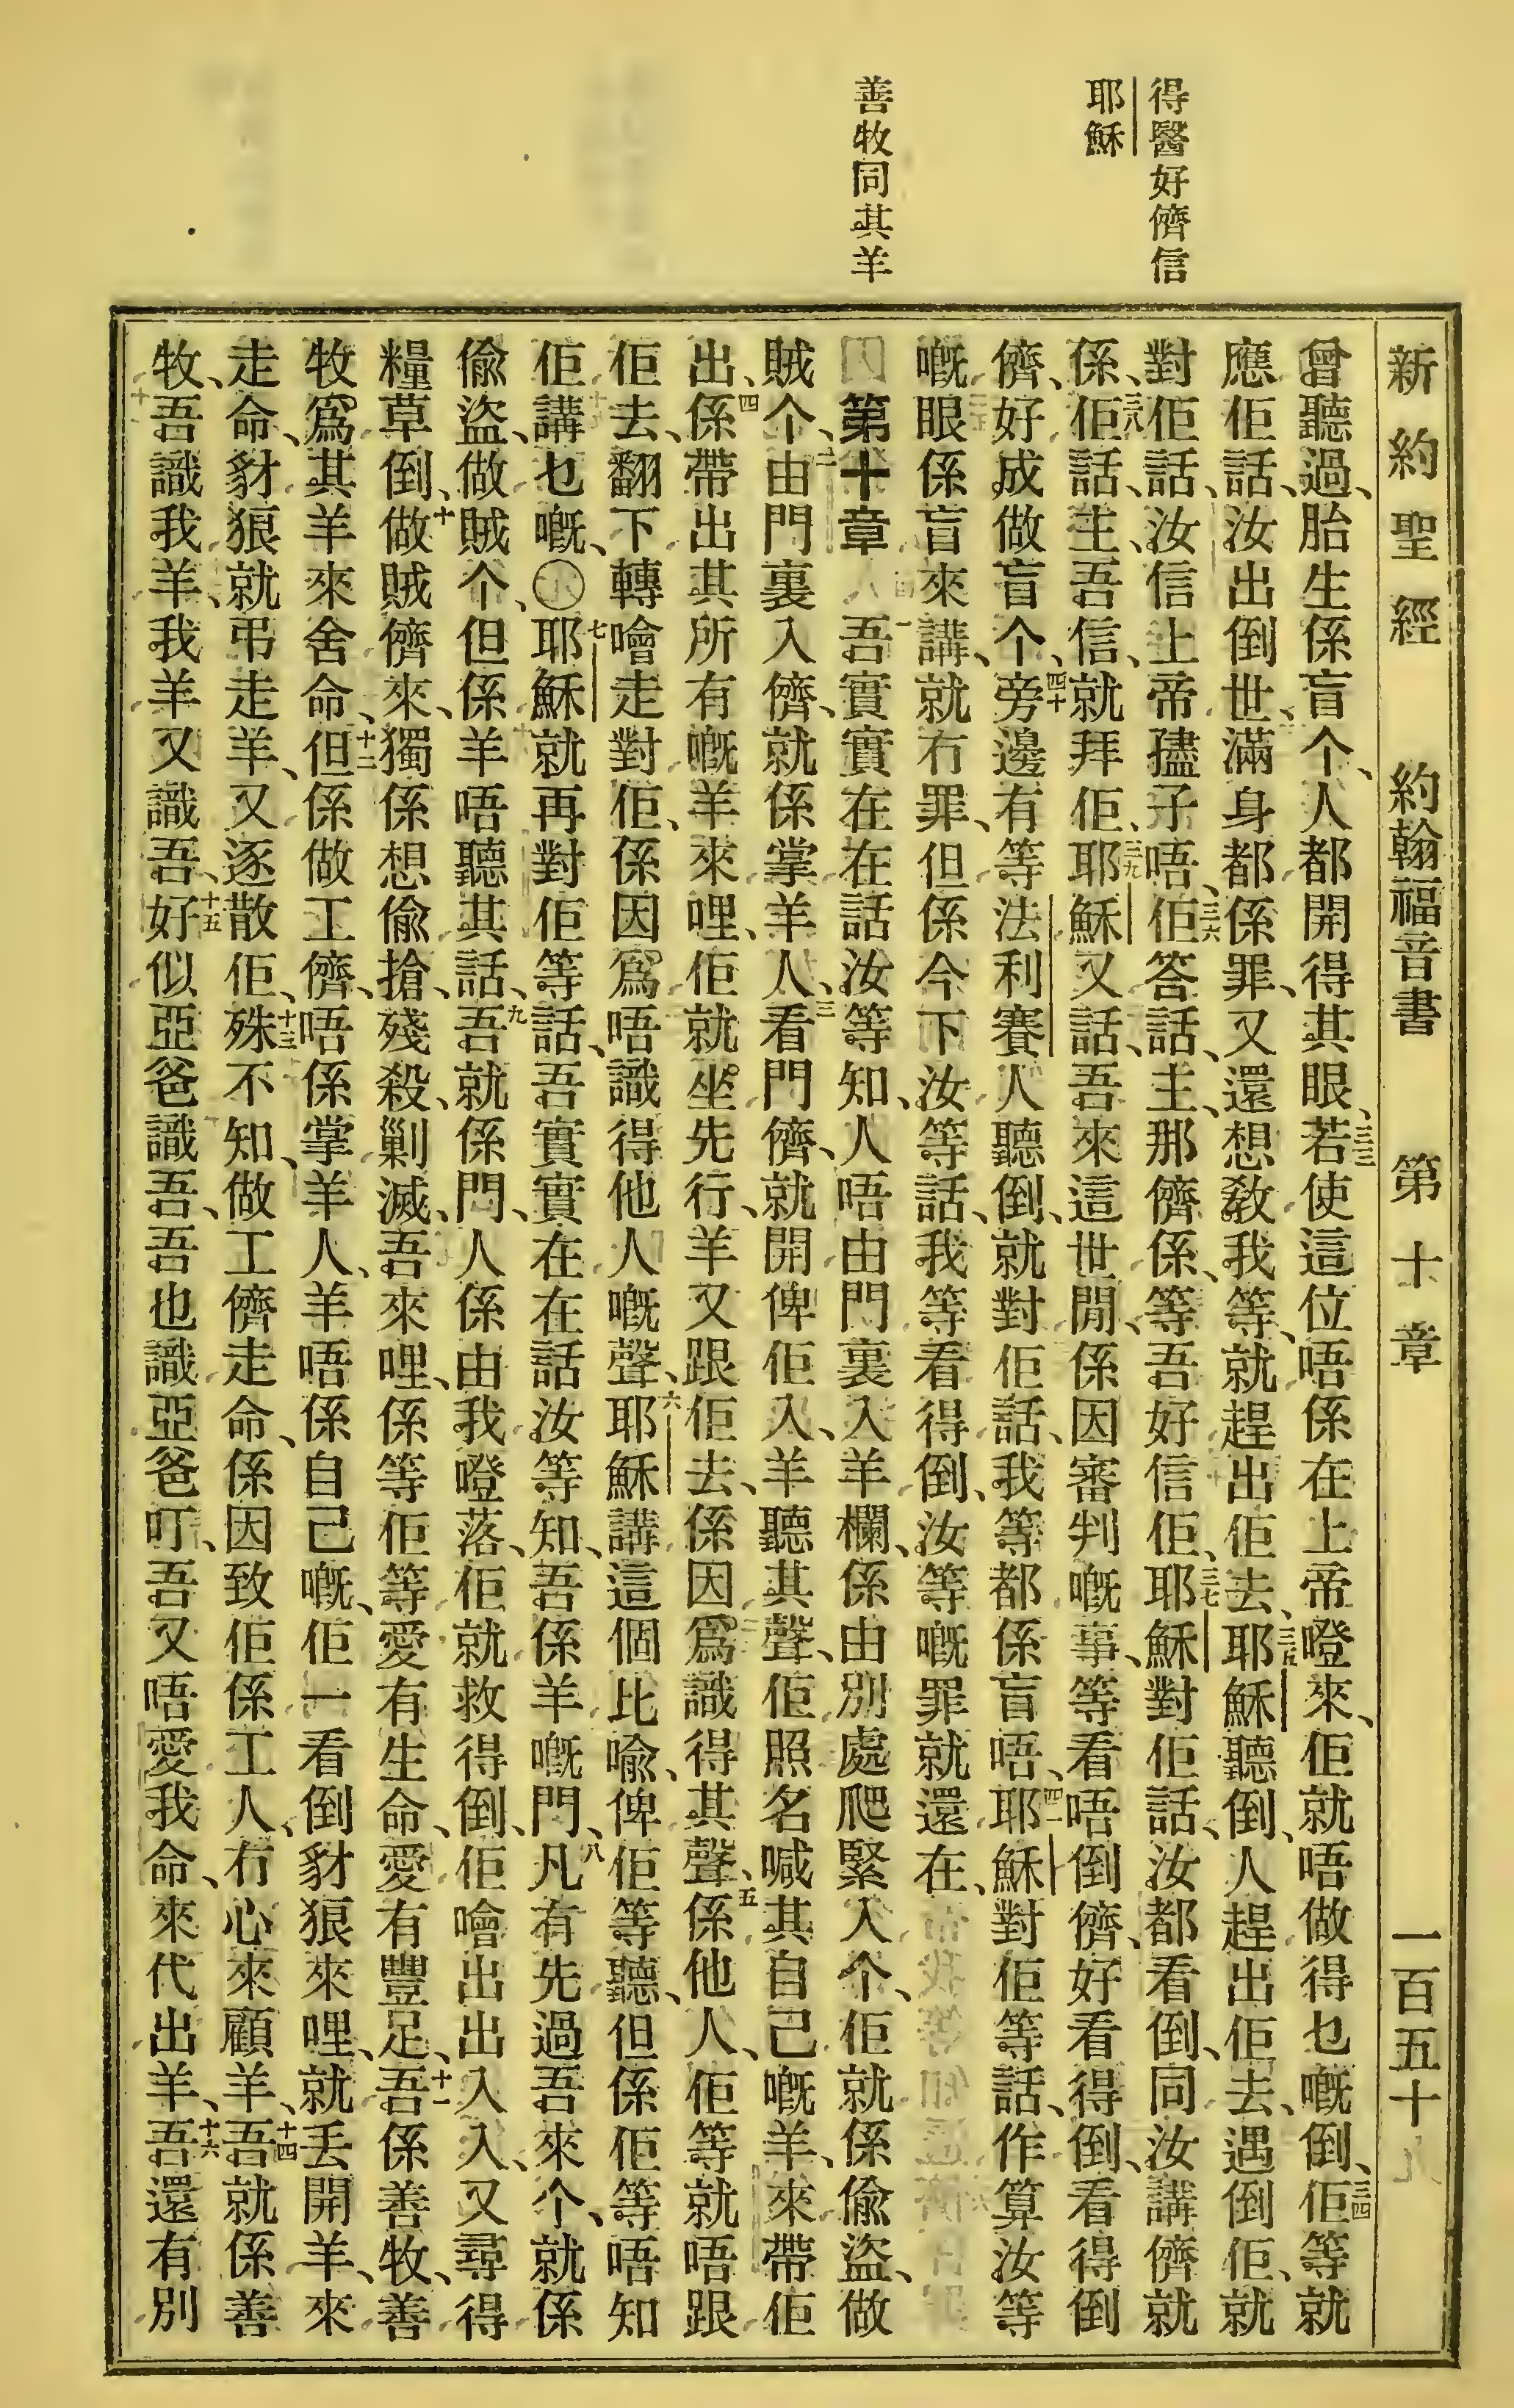 得醫好儕信
耶穌
善牧同其羊
新約聖經 約翰福音書 第十章 一百五十九
曾聽過、胎生係盲个、人都開得其眼、三三若使這位唔係在上帝嶝來、佢就唔做得乜嘅倒、三四佢等就
應佢話、汝出倒世、滿身都係罪、又還想敎我等、就趕出佢去、三五耶穌聽倒、人趕出佢去、遇倒佢、就
對佢話、汝信上帝孻子唔、三六佢答話、主、那儕係、等吾好信佢、三七耶穌對佢話、汝都看倒、同汝講儕就
係、三八佢話、主、吾信、就拜佢、三九耶穌又話、吾來這世間、係因審判嘅事、等看唔倒儕、好看得倒、看得倒
儕、好成做盲个、四十旁邊有等法利賽人聽倒、就對佢話、我等都係盲唔、四一耶穌對佢等話、作算汝等
嘅眼係盲來講、就冇罪、但係今下汝等話、我等看得倒、汝等嘅罪就還在、
第十章 一吾實實在在話汝等知、人唔由門裏入羊欄、係由別處爬緊入个、佢就係偷盜、做
賊个、二由門裏入儕、就係掌羊人、三看門儕、就開俾佢入、羊聽其聲、佢照名喊其自己嘅羊、來帶佢
出、四係帶出其所有嘅羊來哩、佢就坐先行、羊又跟佢去、係因爲識得其聲、五係他人、佢等就唔跟
佢去、翻下轉噲走對佢、係因爲唔識得他人嘅聲、六耶穌講這個比喩、俾佢等聽、但係佢等唔知
佢講乜嘅、〇七耶穌就再對佢等話、吾實實在在話汝等知、吾係羊嘅門、八凡有先過吾來个、就係
偷盜、做賊个、但係羊唔聽其話、九吾就係門、人係由我嶝落、佢就救得倒、佢噲出出入入、又尋得
糧草倒、十做賊儕來、獨係想偷搶、殘殺、剿滅、吾來哩、係等佢等愛有生命、愛有豐足、十一吾係善牧、善
牧爲其羊來舍命、十二但係做工儕、唔係掌羊人、羊唔係自己嘅、佢一看倒豺狼來哩、就丢開羊、來
走命、豺狼就弔走羊、又逐散佢、十三殊不知、做工儕走命、係因致佢係工人、冇心來顧羊、十四吾就係善
牧、吾識我羊、我羊又識吾、十五好似亞爸識吾、吾也識亞爸叮、吾又唔愛我命、來代出羊、十六吾還有別